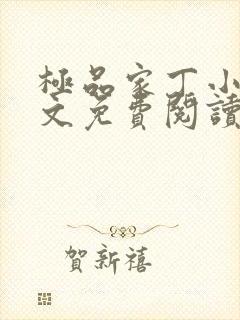 極品家丁小
文免費閱讀
賀新禧